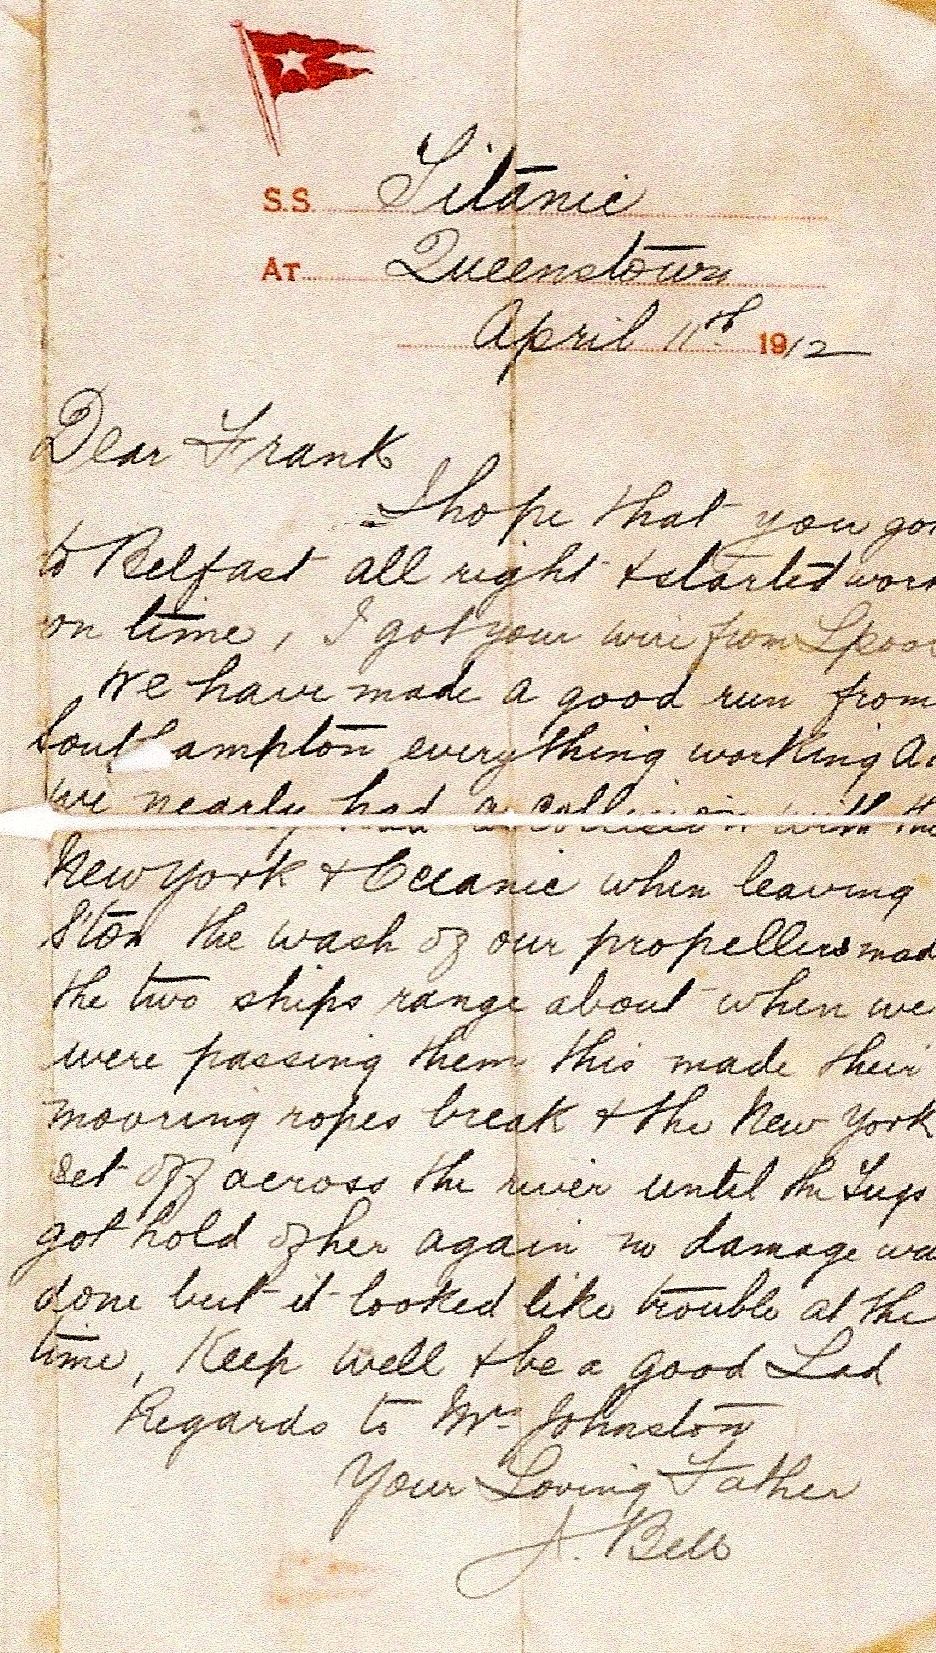 S.S. Titanic
At Queenstown
April 11th 1912
Dear Frank
I hope that you got
to Belfast all right & started work
on time, I got your wire from L'pool
We have made a good run from
Southampton everything working A1
we nearly had a collision with the
New York & Oceanic when leaving
S'ton the wash of our propellers made
the two ships range about when we
were passing them this made their
mooring ropes break & the New York
set off across the river until the Tugs
got hold of her again no damage was
done but it looked like trouble at the
time, Keep well & be a good Lad
Regards to Mrs Johnston
Your Loving Father
J. Bell